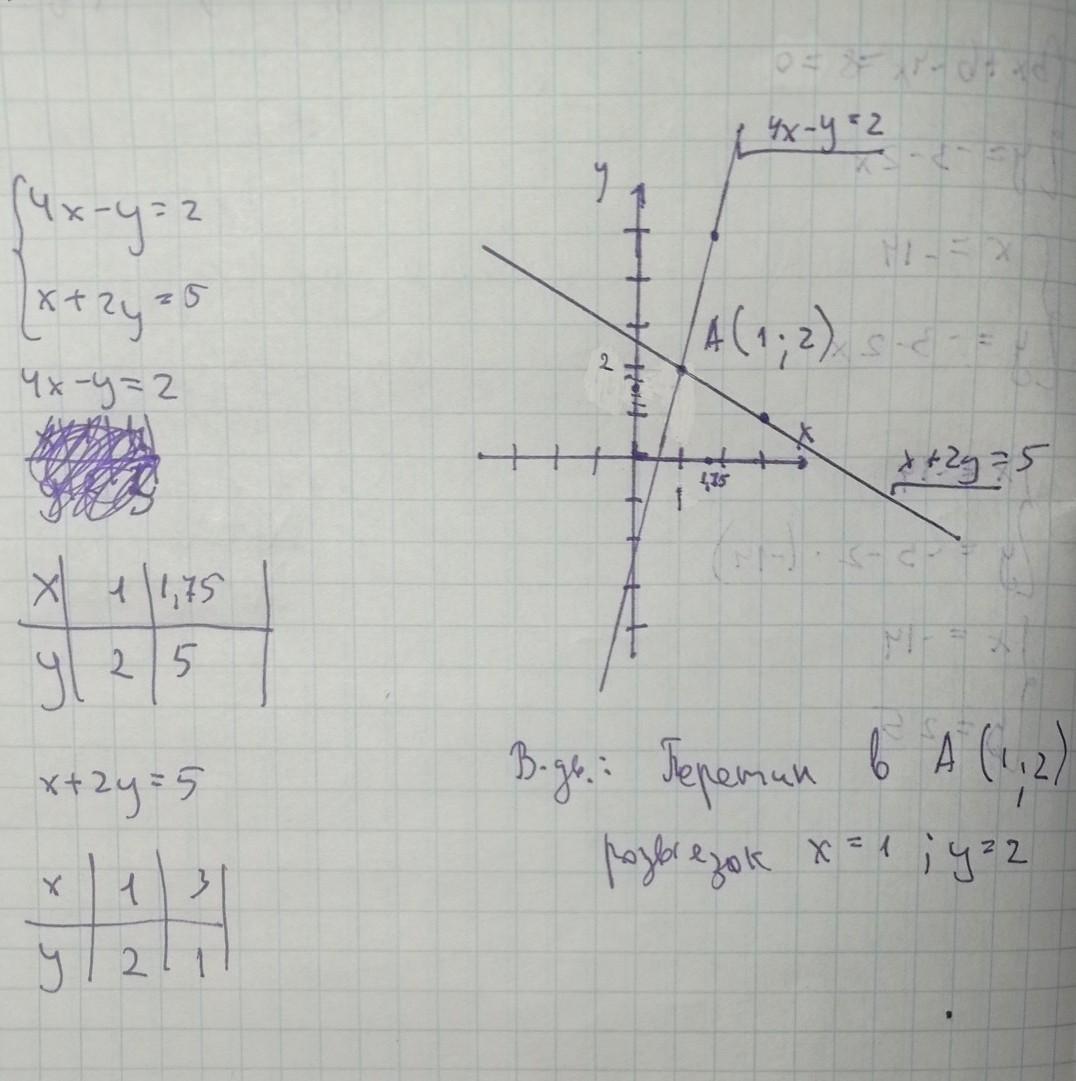 4x-y=2
x+2y=5
4x-y=2
x | 1 | 1,75
y | 2 | 5
x+2y=5
x | 1 | 3
y | 2 | 1
4x-y=2
y
A(1;2)
2
x
1
1,75
x+2y=5
В-дь.: Перетин в A(1;2)
розвязок x=1; y=2